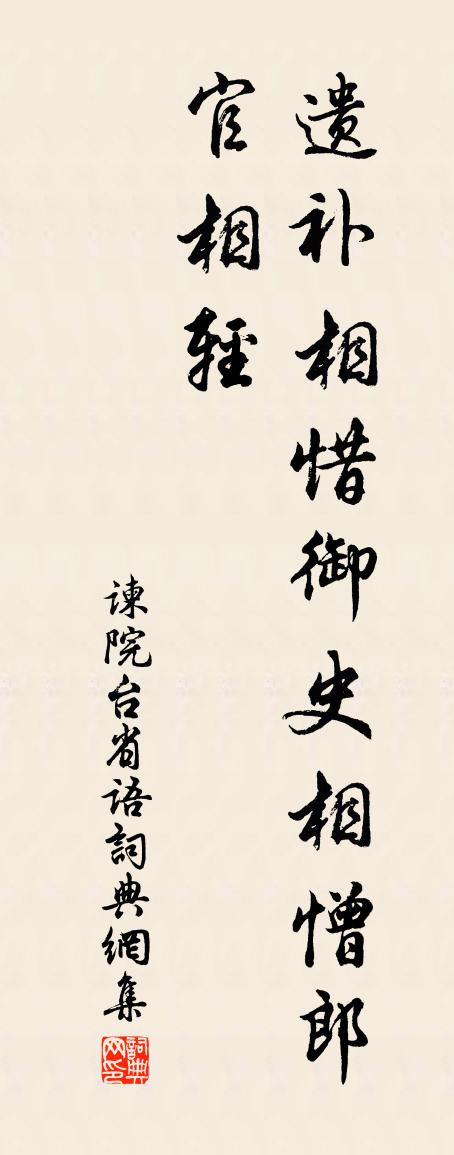 遗补相惜御史相憎郎
官相轻
谏院台省语詞典網集
詞典网印